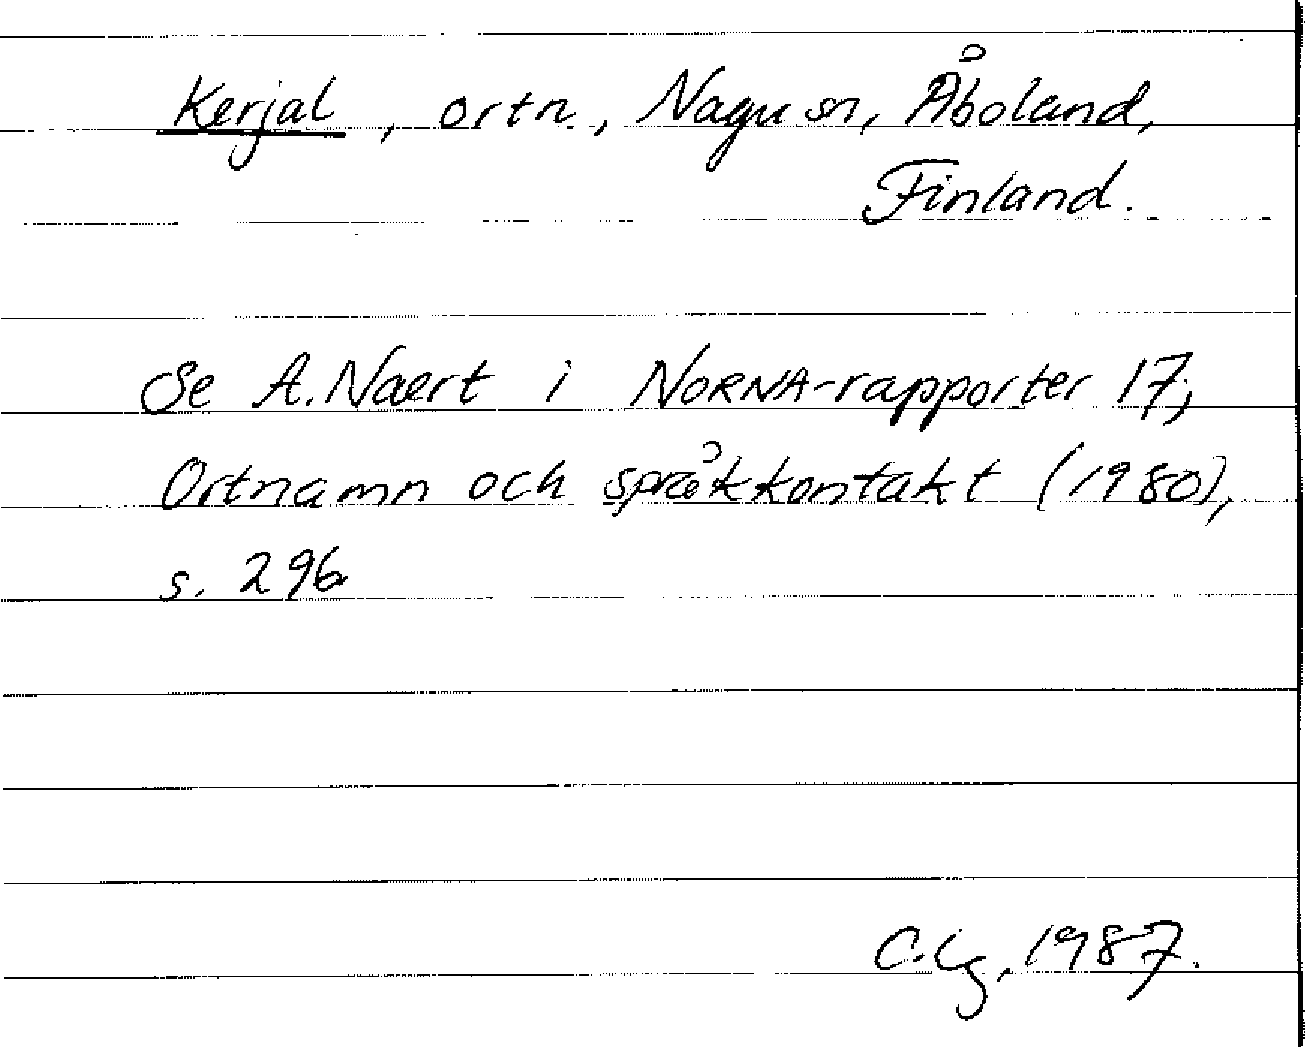 Kerjal, ortn., Nagu sn, Åboland,
Finland.
Se A. Naert i NORNA-rapporter 17,
Ortnamn och språkkontakt (1980),
s. 296
C. Lg, 1987.